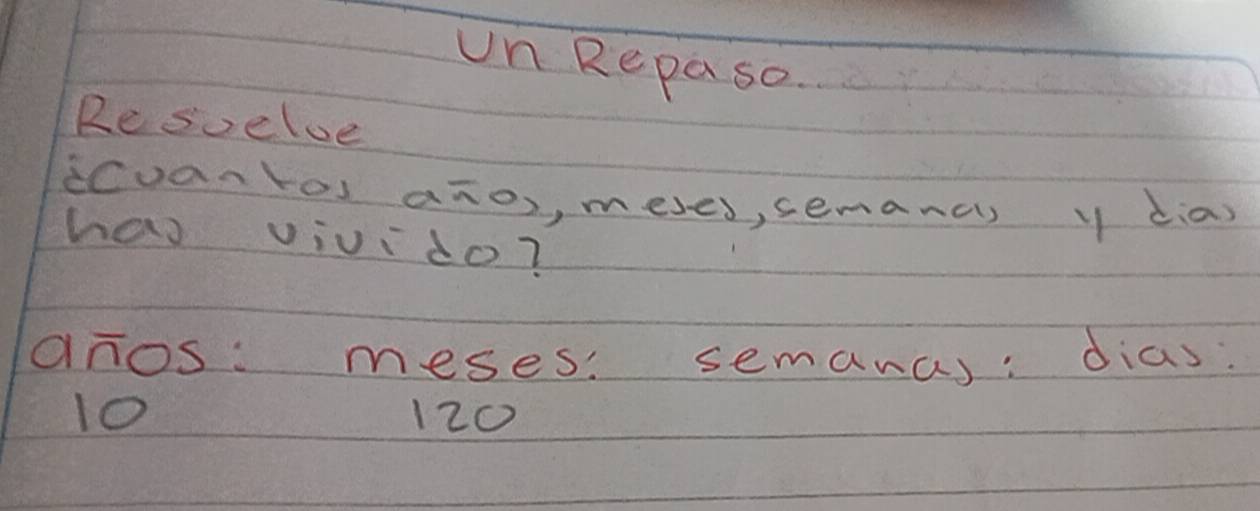 Un Repaso...
Resuelve
¿Cuantos años, meses, semanas y dias
has vivido?
años: meses: semanas: dias:
10 120